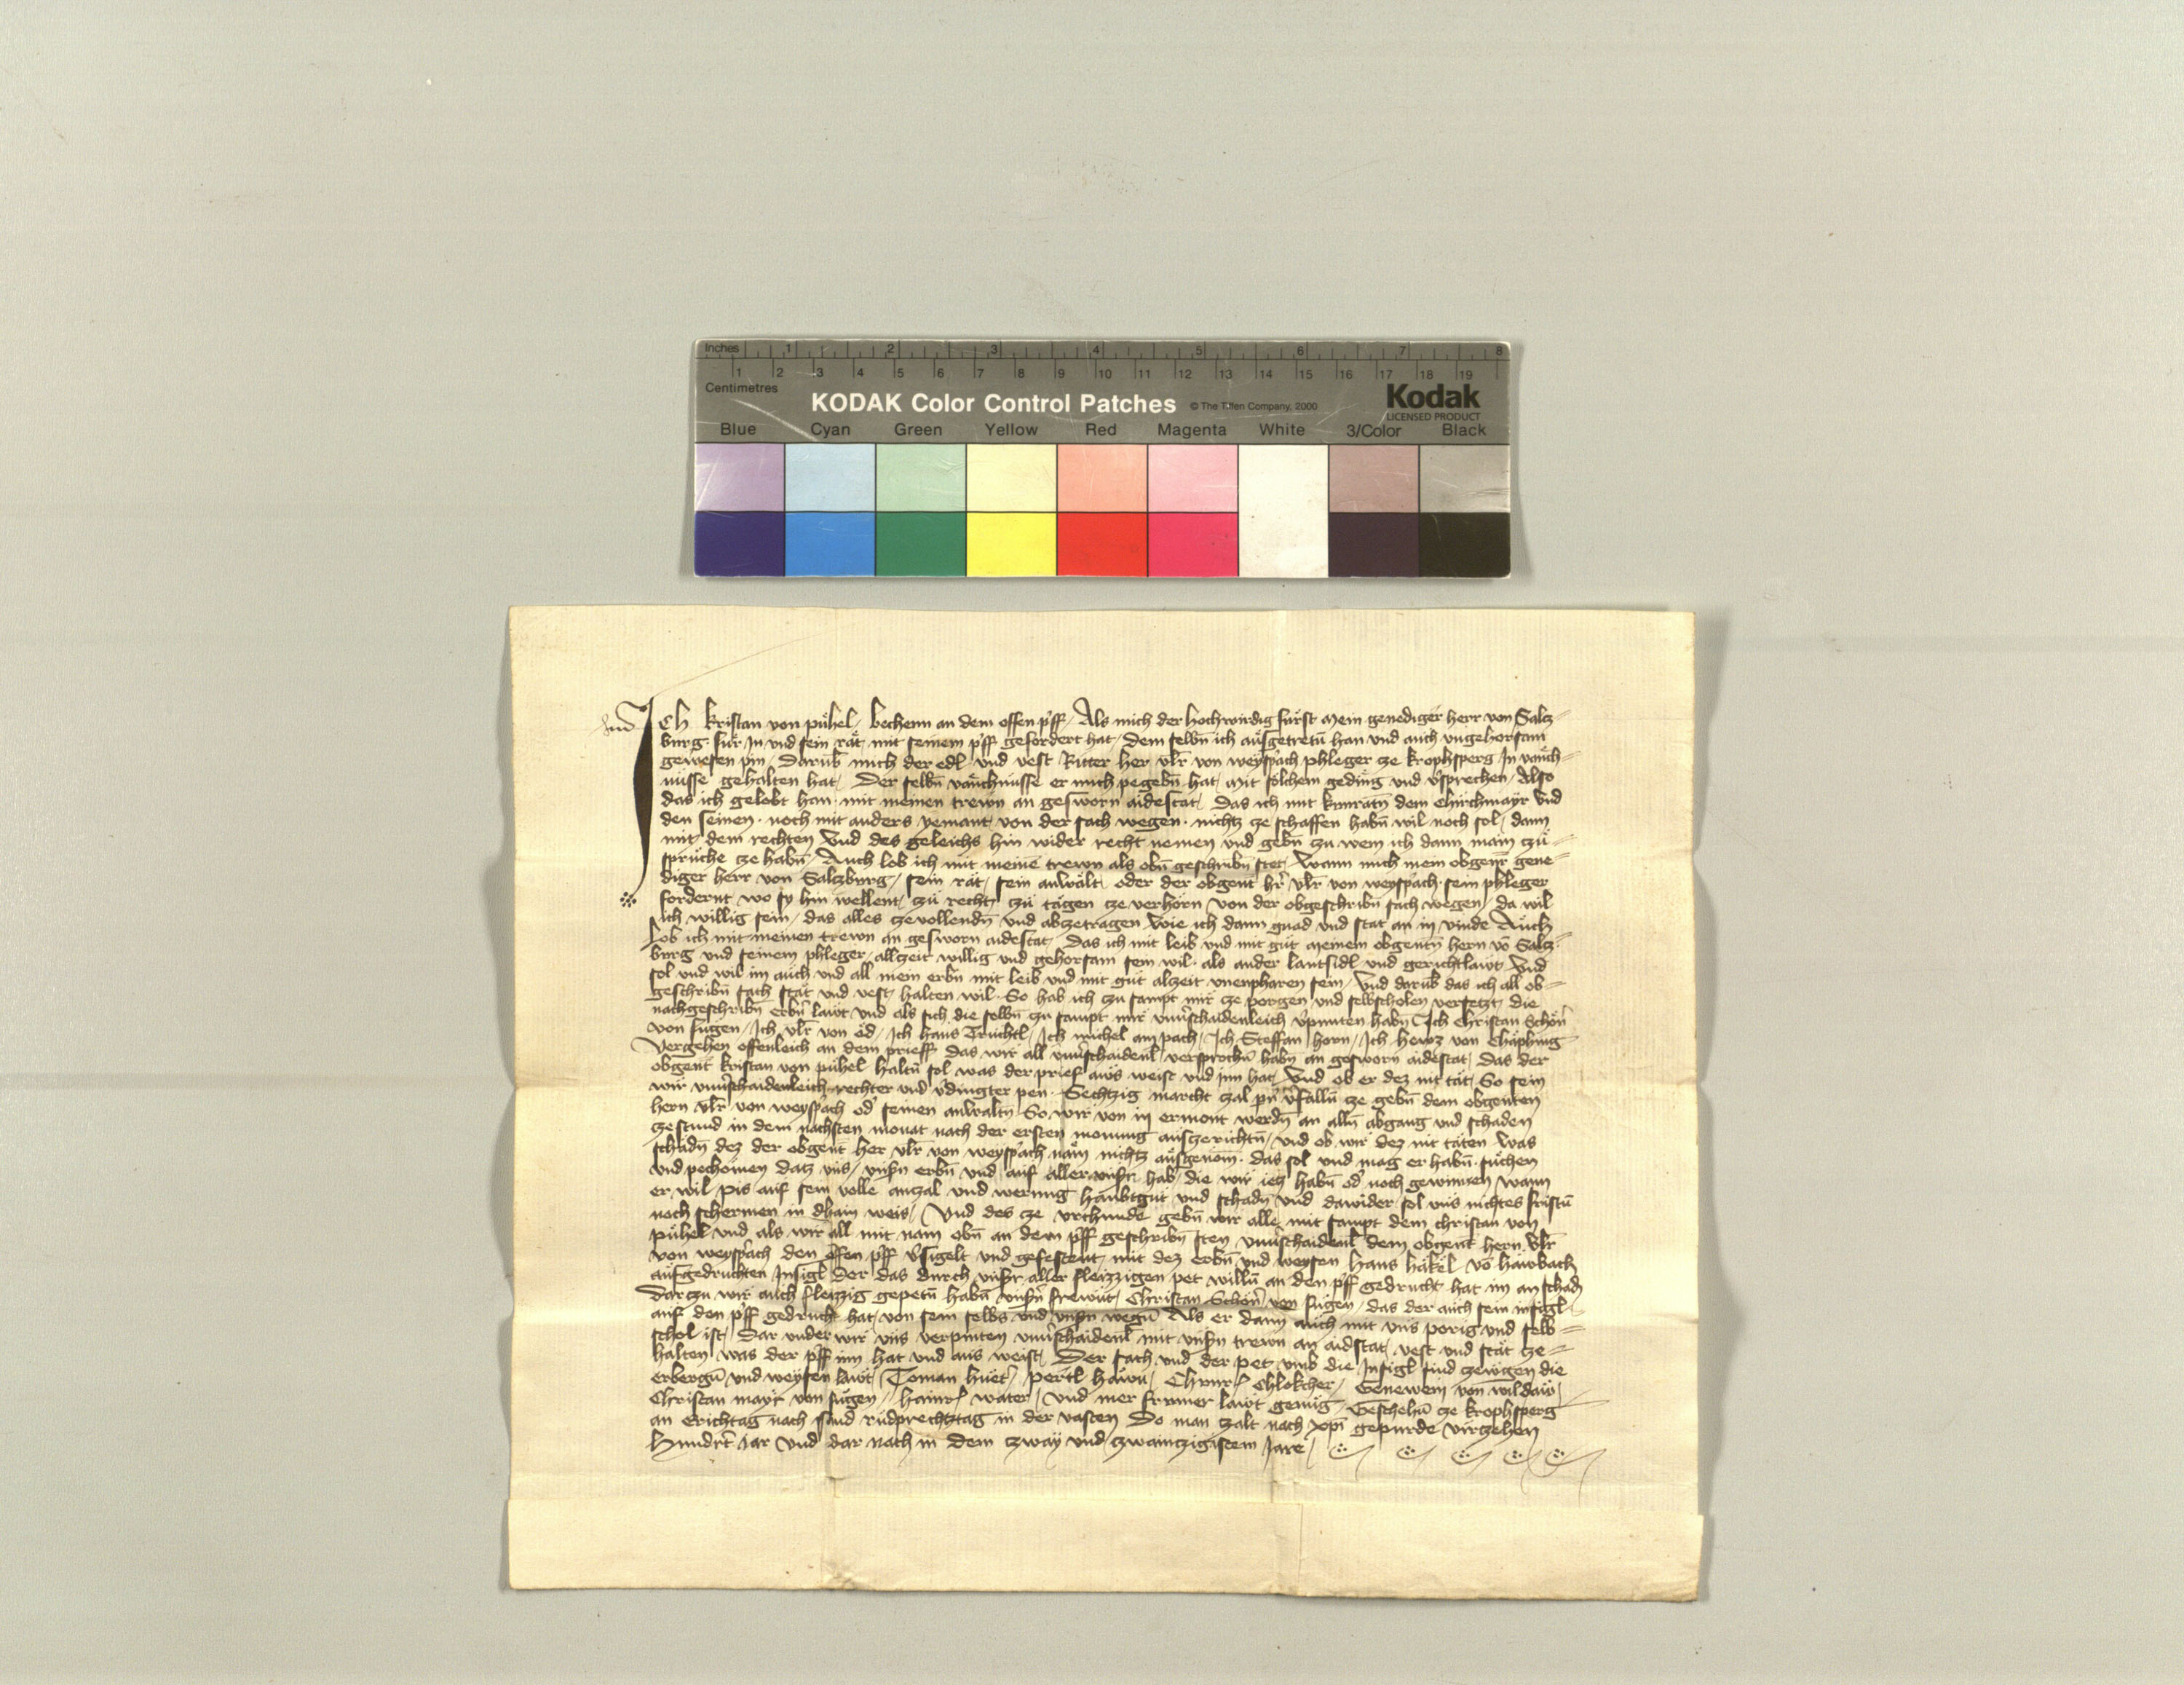 Inches 1 2 3 4 5 6 7 8
1 2 3 4 5 6 7 8 9 10 11 12 13 14 15 16 17 18 19
Centimetres
KODAK Color Control Patches © The Tiffen Company, 2000 Kodak
LICENSED PRODUCT
Blue Cyan Green Yellow Red Magenta White 3/Color Black
Ich kristan von pühel bechenn an dem offen pˢff Als mich der hochwirdig fürst mein genediger herr von Salcz=
burg für In und sein rät mit seinem pˢff gefordert hat dem selbn̄ ich ausgetretn̄ han und auch ungehorsam
gewesen pin Darub̄ mich der edl und vest Ritter her vlr̄ von weysp̄ach phleger ze krophsperg In vanch=
nüsse gehalten hat Der selbn̄ vanchnüsse er mich pegebn̄ hat mit solchem geding und vˢsprechen Also
das ich gelobt han mit meinen trewn an gesworn aidestat Das ich mit kunratn̄ dem Chirchmayr und
den seinen noch mit anders yemant von der sach wegen nichtz ze schaffen habn̄ wil noch sol dann
mit dem rechten Und des geleichs hin wider recht nemen und gebn̄ zu wem ich dann main zü=
sprüche ze habn̄ Auch lob ich mit meinē trewn als obn̄ geschribn̄ stet Wann mich mein obgent̄ gene=
diger herr von Salczburg sein rät sein anwält oder der obgent̄ hr̄ vlr̄ von weysp̄ach sein phleger
fordernt wo sy hin wellent zü recht zü tägen ze verhörn von der obgeschribn̄ sach wegen da wil
ich willig sein das alles ze vollendn̄ und abzetragen Wie ich dann gnad und stat an in vinde Auch
lob ich mit meinen trewn an gesworn aidestat Das ich mit leib und mit güt meinem obgentn̄ hern vō Salcz=
burg und seinem phleger allzeit willig und gehorsam sein wil als ander lantsidl und gerichtlawt Und
sol und wil im auch und all mein erbn̄ mit leib und mit güt alzeit unenpharen sein Und darub̄ das ich all ob=
geschribn̄ sach stät und vest halten wil So hab ich zu sampt mir ze porgen und selbscholen versetzt die
nachgeschribn̄ erbn̄ lawt und als sich die selbn̄ zu sampt mir unuˢschaidenleich vˢpunten habn̄ Ich Christan Schön
von fugen Ich vlr̄ von öd Ich hans Truchtl Ich michel am pach Ich Steffan horn Ich
Vergehen offenleich an dem prieff das wir all unuˢschaidenl̄ versprochn̄ habn̄ an gesworn aidestat Das der
obgent̄ kristan von pühel haltn̄ sol was der prief aws weist und inn hat Und ob er dez nit tät So sein
wir unuˢschaidenleich rechter und vˢdingter pen Sechtzig marcht zal vˢfalln̄ ze gebn̄ dem obgenten
hern vlr̄ von weysp̄ach odˢ seinen anwaltn̄ So wir von in ermont werdn̄ an alln̄ abgang und schaden
ze stund in dem nachsten monat nach der ersten monung auszerichtn̄ und ob wir dez nit täten Was
schadn̄ dez der obgent̄ her vlr̄ von weysp̄ach näm nichtz ausgenom̄ das sol und mag er habn̄ suchen
und pechomen datz uns unsn̄ erbn̄ und auf aller unsr̄ hab die wir ietz habn̄ odˢ noch gewinnen wann
er wil pis auf sein volle anzal und werung haubtgut und schadn̄ und dawider sol uns nichtes fristn̄
noch schermen in dhain weis Und des ze vrchunde gebn̄ wir alle mit sampt dem christan von
pühel und als wir all mit nam obn̄ an dem pˢff geschribn̄ sten unuˢschaidenl̄ dem obgent̄ hern vlr̄
von weysp̄ach den offen pˢff vˢsigelt und gefestent mit dez erbn̄ und weysen hans häkel vō hawbach
aufgedruchten Insigl der das durch unsr̄ aller fleizzigen pet willn̄ an den pˢff gedrucht hat im an schadn̄
dar zu wir auch fleizzig gepetn̄ habn̄ unsn̄ frewnt Christan Schön von fügen das der auch sein insigl
auf den pˢff gedrucht hat von sein selbs und unsn̄ wegn̄ Als er dann auch mit uns porig und selb=
schol ist Dar under wir uns verpinten unuˢschaidenl̄ mit unsn̄ trewn an aidstat vest und stät ze=
halten was der pˢff inn hat und aus weist Der sach und der pet umb die Insigl sind zewgen die
erbergn̄ und weysen lawt Toman huet pertl hawn Chlokcher Genewein von wildaw
Christan mayr von fügen hainr̄ water und mer frumer lawt genug Geschehn̄ ze krophsperg
an Erichtag nach sand rudprechtztag in der vasten Do man zalt nach xpī gepurde virzehen
hundrt̄ Jar Und dar nach in dem zway und zwainzigistem Jare